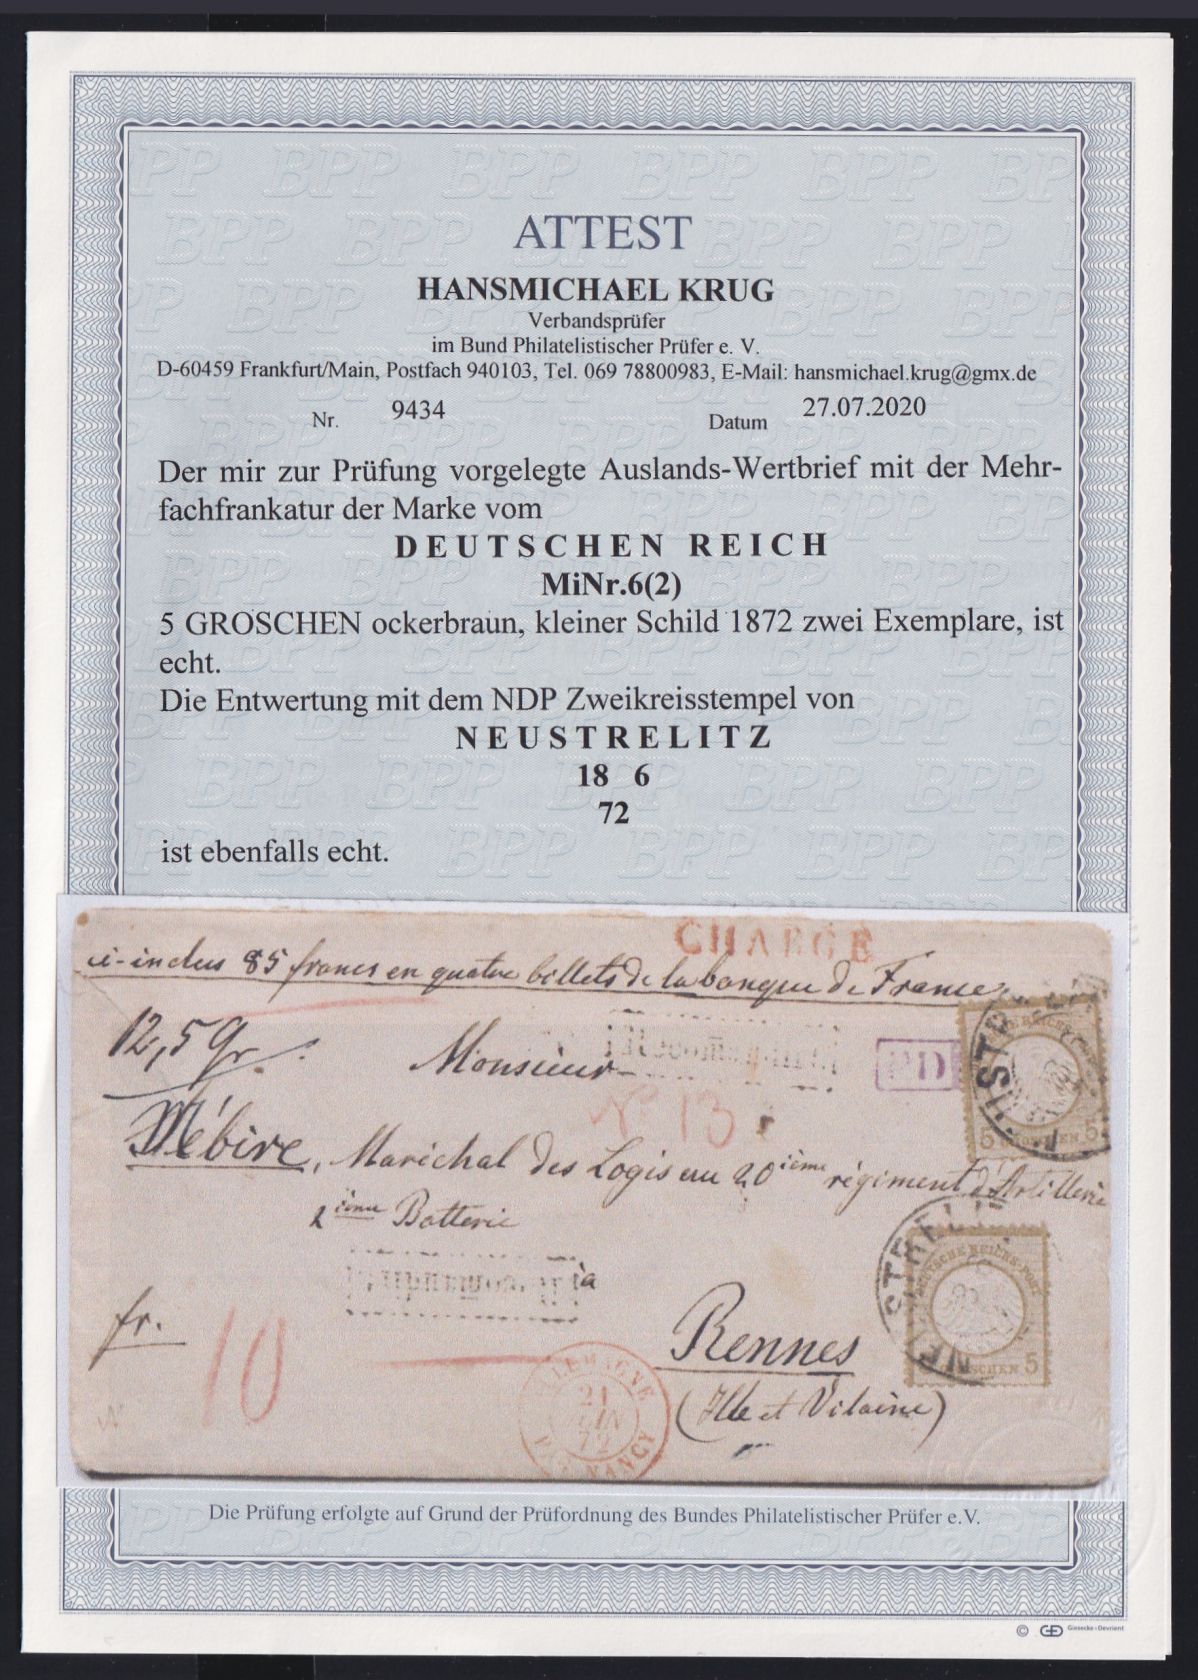 ATTEST
HANSMICHAEL KRUG
Verbandsprüfer
im Bund Philatelistischer Prüfer e. V.
D-60459 Frankfurt/Main, Postfach 940103, Tel. 069 78800983, E-Mail: hansmichael.krug@gmx.de
Nr. 9434 Datum 27.07.2020
Der mir zur Prüfung vorgelegte Auslands-Wertbrief mit der Mehr-
fachfrankatur der Marke vom
DEUTSCHEN REICH
MiNr.6(2)
5 GROSCHEN ockerbraun, kleiner Schild 1872 zwei Exemplare, ist
echt.
Die Entwertung mit dem NDP Zweikreisstempel von
NEUSTRELITZ
18 6
72
ist ebenfalls echt.
CHARGE
ci-inclus 85 francs en quatre billets de la banque de France
12,5 gr.
Monsieur
Recommandirt
PD
No 13
Mébire, Marichal des Logis au 20ième régiment d'Artillerie
2ième Batterie
à
fr.
10
Rennes
(Ille et Vilaine)
ALLEMAGNE
21
JUIN
72
NANCY
NEUSTRELITZ
DEUTSCHE REICHS-POST
GROSCHEN 5
5 GROSCHEN 5
Die Prüfung erfolgte auf Grund der Prüfordnung des Bundes Philatelistischer Prüfer e.V.
© GD Giesecke+Devrient